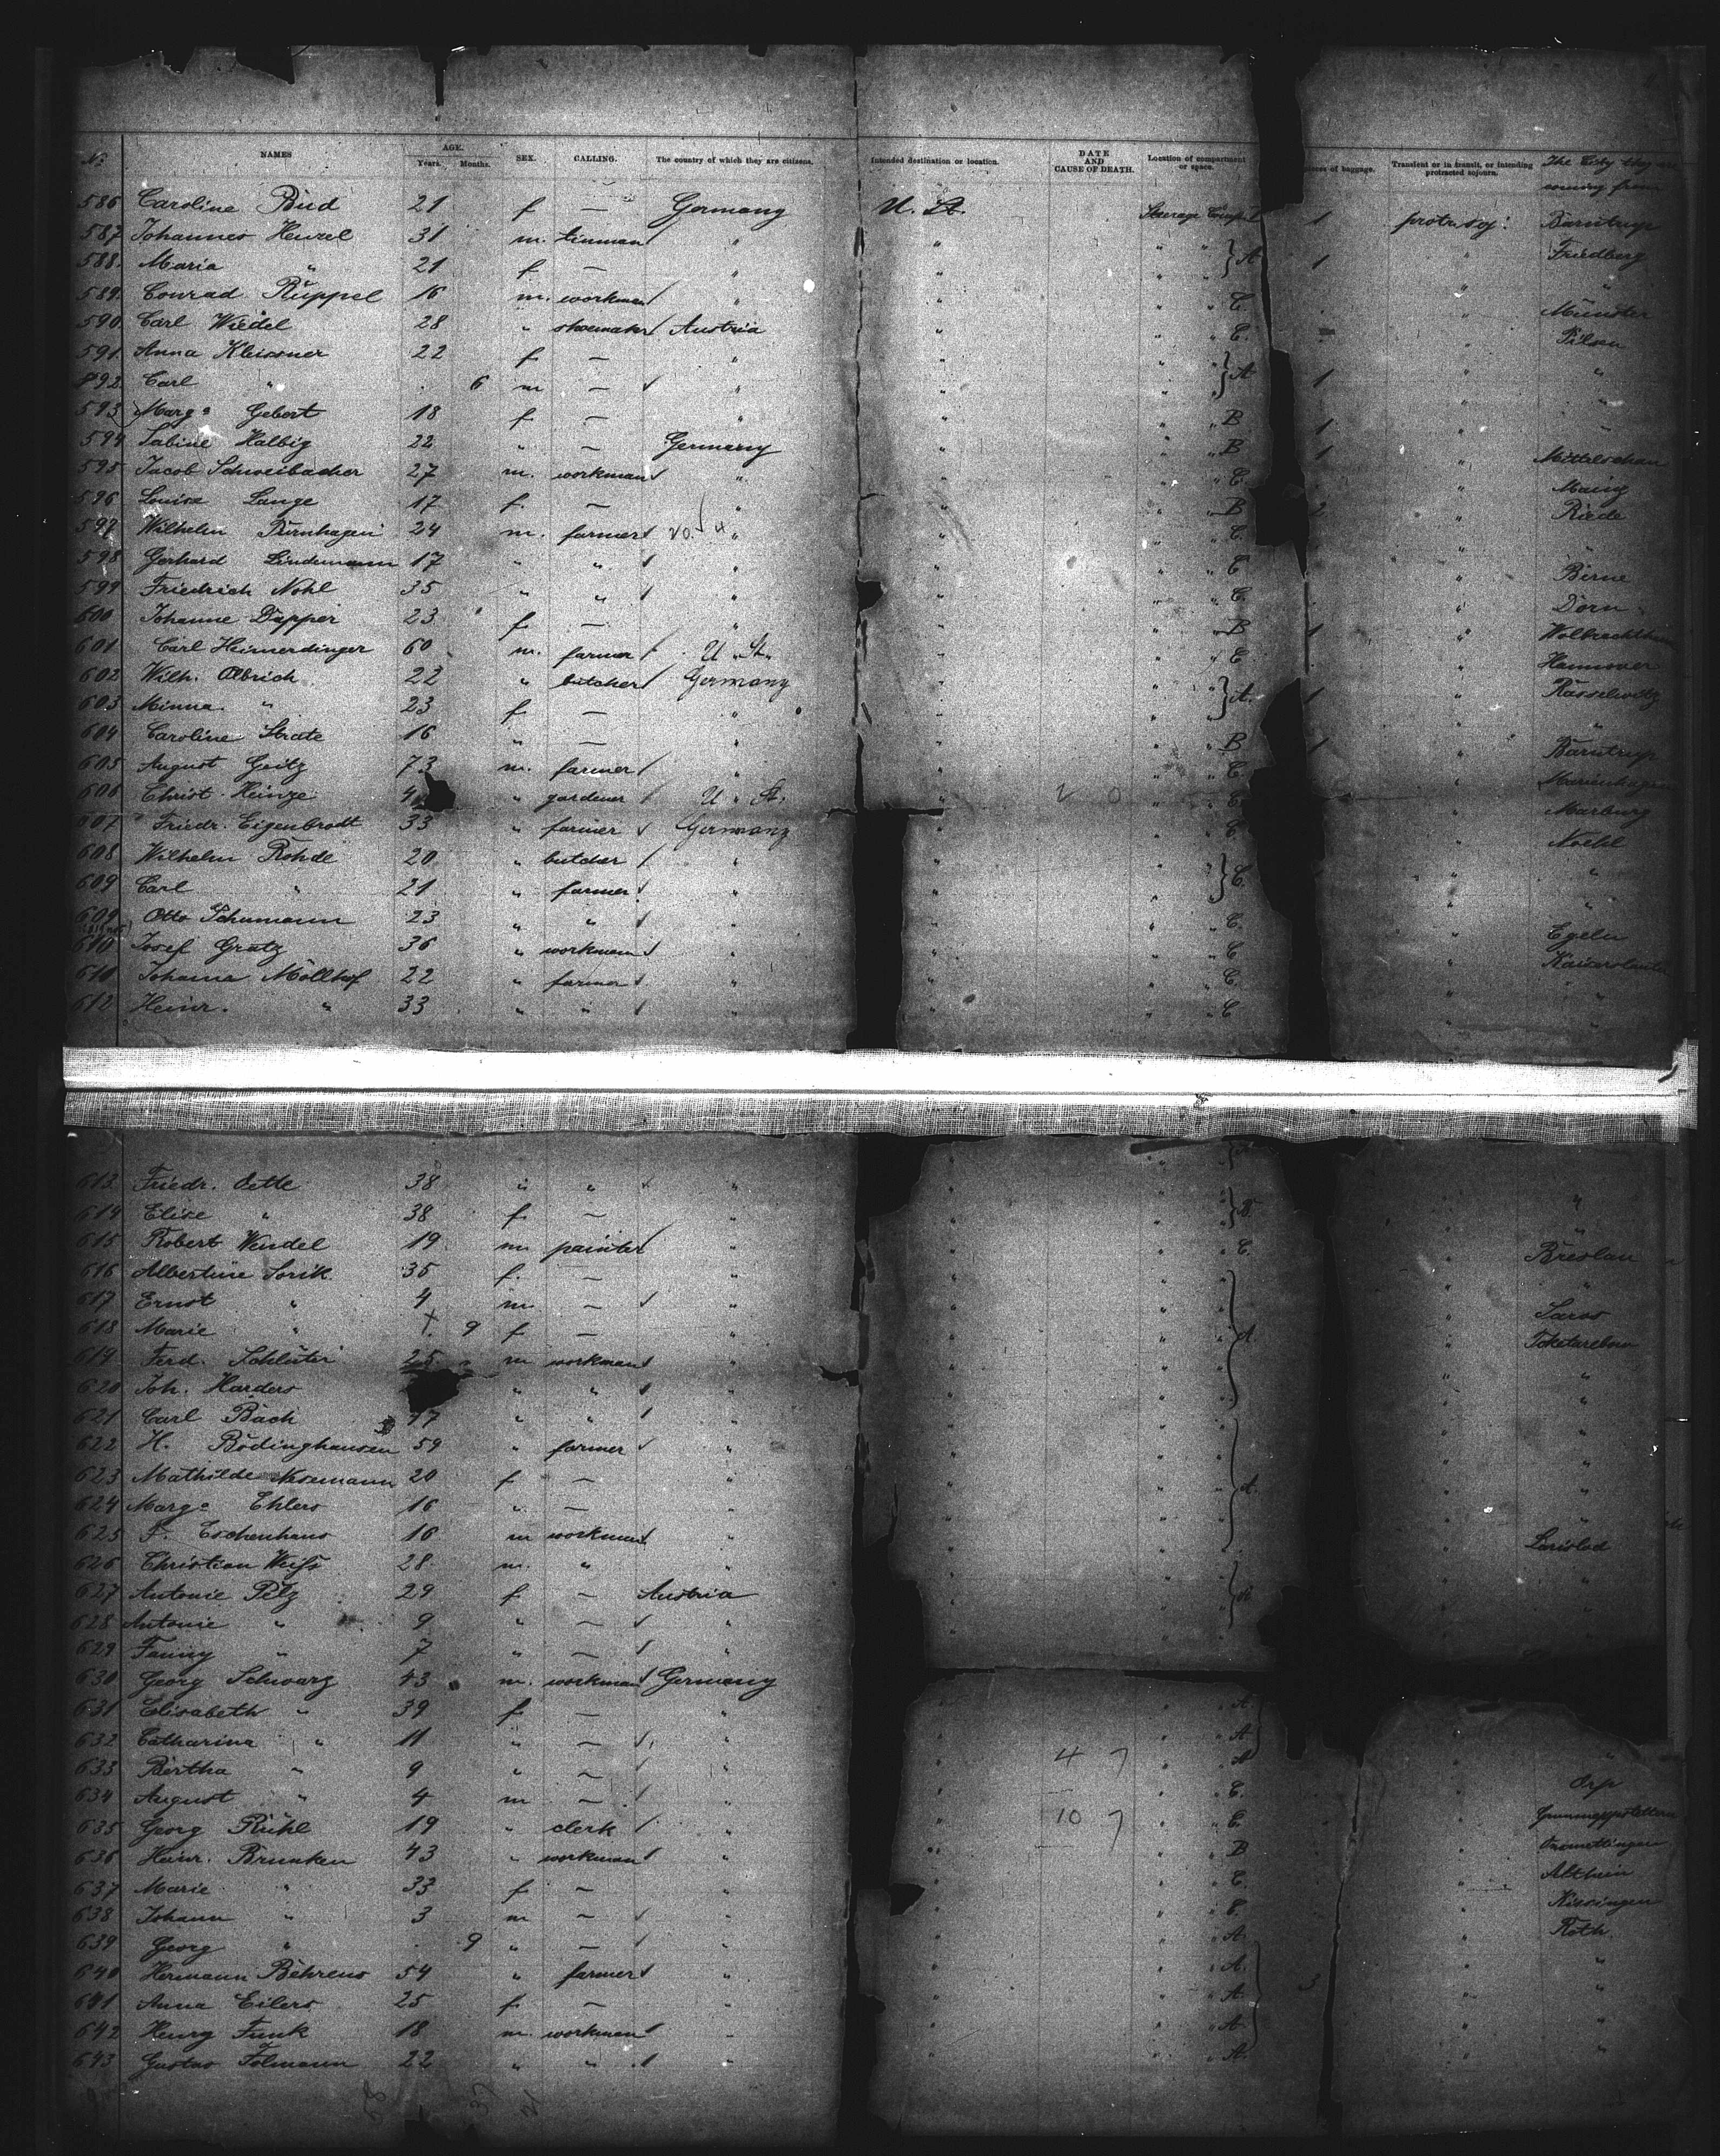 No. NAMES AGE. Years. Months. SEX. CALLING. The country of which they are citizens. Intended destination or location. DATE AND CAUSE OF DEATH. Location of compartment or space. pieces of baggage. Transient or in transit, or intending protracted sojourn. The City they are coming from
586 Caroline Bud 21 f — Germany U. St. Steerage Comp. 1 protr. soj: Barntrup
587 Johannes Henzel 31 m. tinman " " " " } A 1 " Friedberg
588. Maria " 21 f — " " " " " "
589. Conrad Rüppel 16 m. workman " " " " C. " Münster
590. Carl Wiedel 28 " shoemaker Austria " " " C. " Pilsen
591. Anna Kleissner 22 f — " " " " } A 1 " "
592. Carl " 6 m — " " " " " "
593 Marg.a Gebert 18 f — " " " " B 1 " "
594 Sabine Halbig 22 " — Germany " " " B 1 " Mittelschau
595 Jacob Schweibacher 27 m. workman " " " " C. "
596 Louise Lange 17 f. — " " " " B 2 " Riede
597 Wilhelm Birnhagen 24 m. farmer " " " " C. " "
598 Gerhard Lindemann 17 " " " " " " C " Berne
599 Friedrich Nohl 35 " " " " " " C. " Dorn
600 Johanne Dapper 23 f — " " " " B 1 "
601 Carl Heimerdinger 60 m. farmer U. St. " " " C " Hannover
602 Wilh. Olbrich 22 " butcher Germany " " " } A. 1 " Rasselwitz
603 Minna " 23 f — " " " " " "
604 Caroline Strate 16 " — " " " " B 1 " Barntrup
605 August Geitz 73 m. farmer " " " " C. " Marienhagen
606 Christ. Heinze 4 " gardener U. St. " 2 0 " " C. " Marburg
607 Friedr. Eigenbrodt 33 " farmer Germany " " " C " Noehl
608 Wilhelm Rohde 20 " butcher " " " " } C. " "
609 Carl " 21 " farmer " " " " " "
609 Otto Schumann 23 " " " " " " C. " Egeln
610 Josef Gratz 36 " workman " " " " C "
611 Johann Möllhof 22 " farmer " " " " C. " "
612 Heinr. " 33 " " " " " " C " "
613 Friedr. Oette 38 " " " " " " "
614 Elise " 38 f — " " " " "
615 Robert Wendel 19 m painter " " " " C. " Breslau
616 Albertine Sorik 35 f. — " " " " " "
617 Ernst " 4 m — " " " " " Saros
618 Marie " 9 f — " " " " A. "
619 Ferd. Schlüter 25 m workman " " " " " "
620 Joh. Harders " " " " " " " "
621 Carl Bach 47 " " " " " " " "
622 H. Bödinghausen 59 " farmer " " " " " "
623 Mathilde Nesemann 20 f — " " " " A. " "
624 Marg.a Ehlers 16 " — " " " " " "
625 F. Eschenhaus 16 m workman " " " " "
626 Christian Weiß 28 m. " " " " " " "
627 Antonie Pilz 29 f — Austria " " " " "
628 Antonie " 9 " — " "
629 Fanny " 7 " — "
630 Georg Schwarz 43 m. workman Germany
631 Elisabeth " 39 f — " " " " A. "
632 Catharina " 11 " — " " " " A. " "
633 Bertha " 9 " — " " 4 7 " " A " Orp
634 August " 4 m — " " " " C. "
635 Georg Rühl 19 " clerk " " 10 7 " " C. "
636 Heinr. Brunken 43 " workman " " " " B "
637 Marie " 33 f — " " " " C. " Kissingen
638 Johann " 3 m — " " " " C. " Roth
639 Georg " 9 " — " " " " A. " "
640 Hermann Behrens 54 " farmer " " " " A. 3 " "
641 Anna Eilers 25 f — " " " " A " "
642 Henry Funk 18 m. workman " " " " A. " "
643 Gustav Folmann 22 " " " " " " A. " "